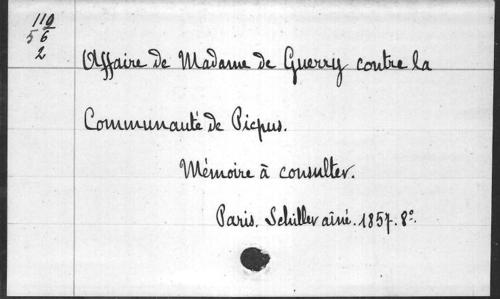 110
5 6
2
Affaire de Madame de Guerry contre la
Communauté de Picpus.
Mémoire à consulter.
Paris. Schiller aîné. 1857. 8°.